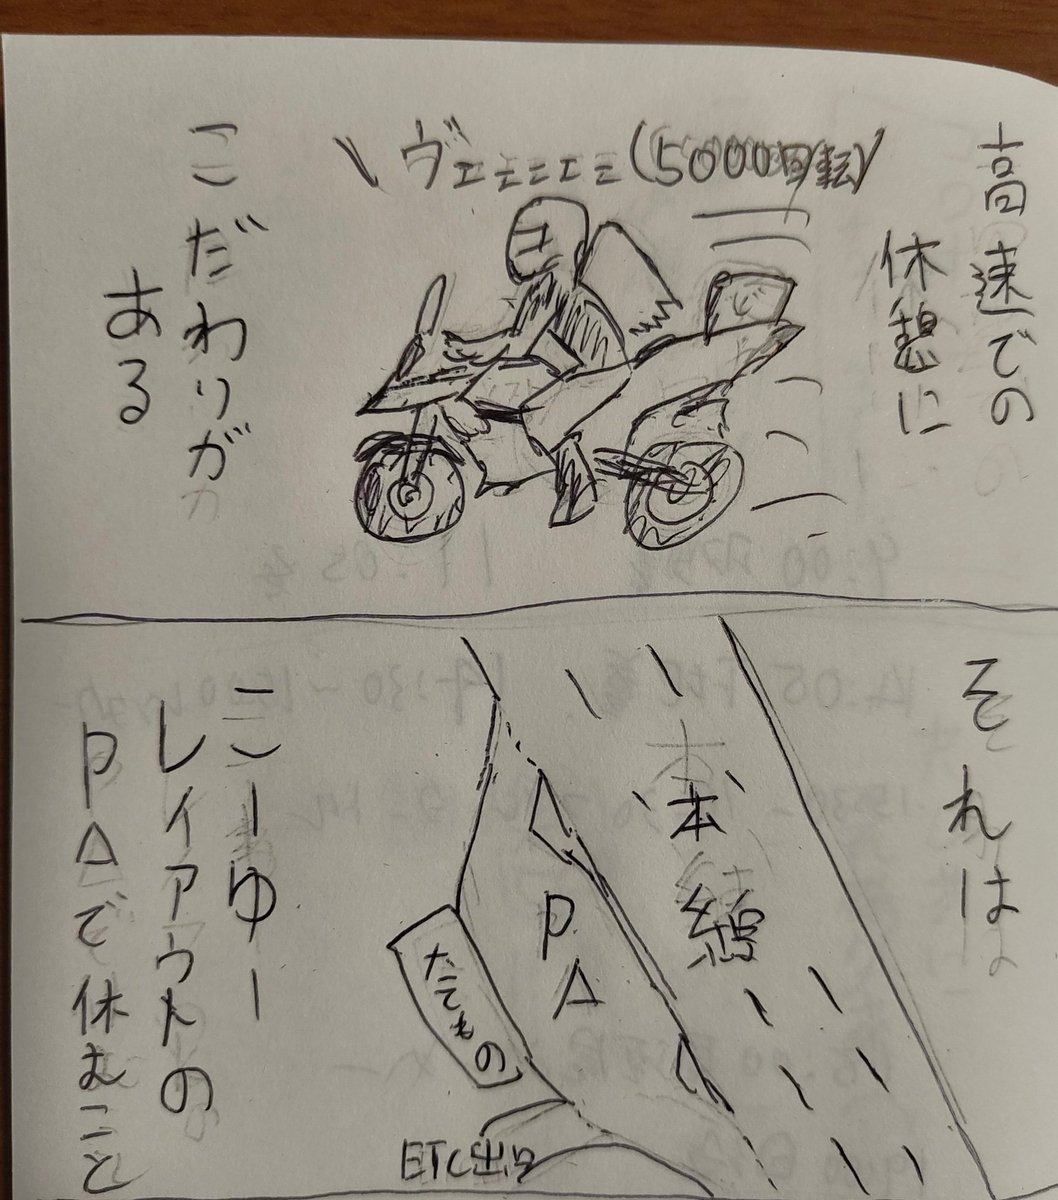 高速での
休憩に
ヴェエエエエ(5000回転)
こだわりが
ある
それは
本線
PA
たてもの
ETC出口
こーゆー
レイアウトの
PAで休むこと